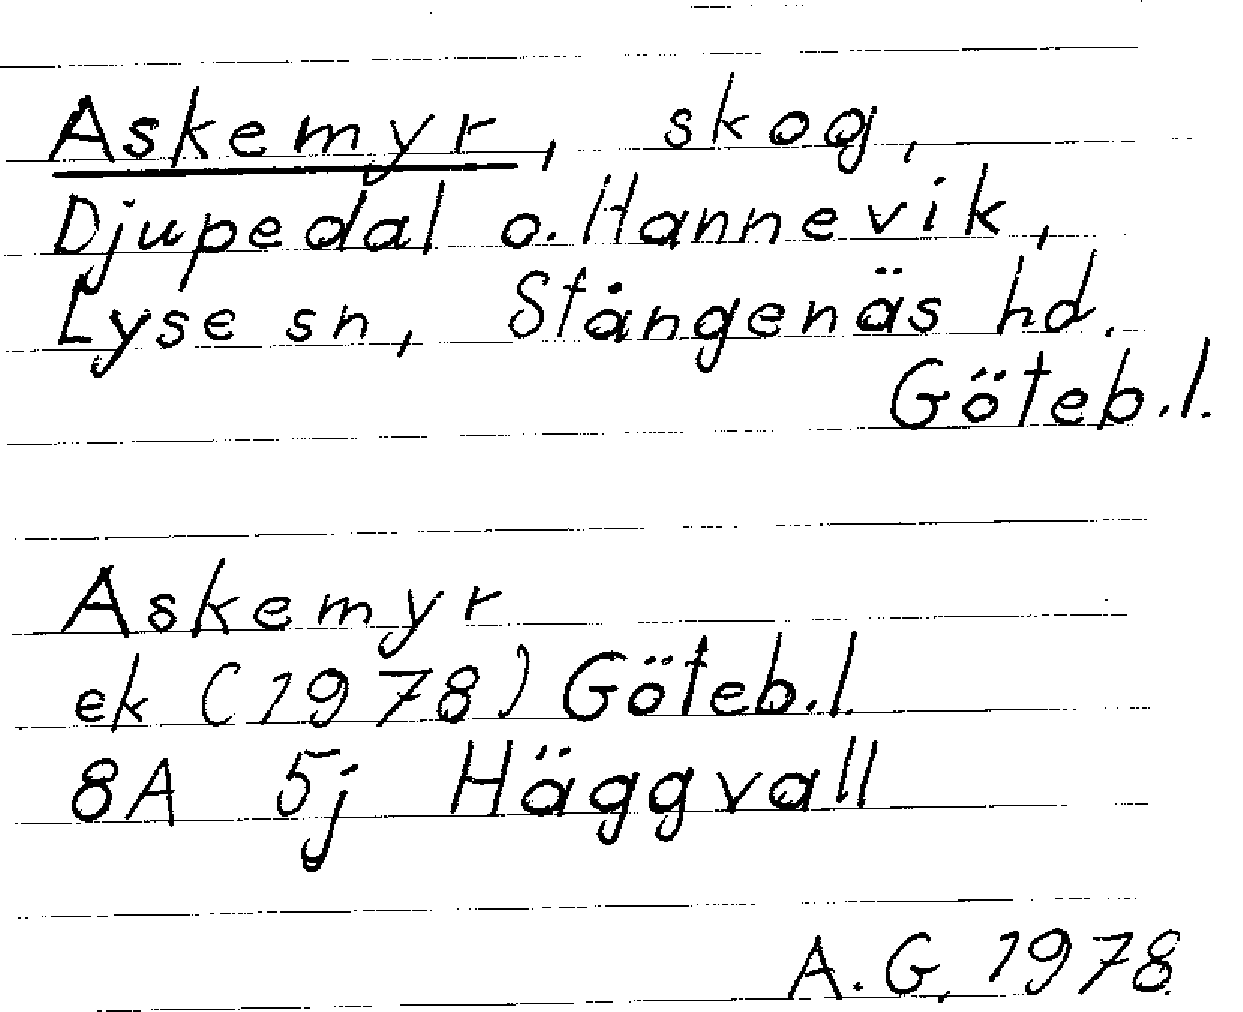 Askemyr, skog,
Djupedal o. Hannevik,
Lyse sn, Stångenäs hd.
Göteb.l.
Askemyr
ek (1978) Göteb.l.
8A 5j Häggvall
A.G. 1978